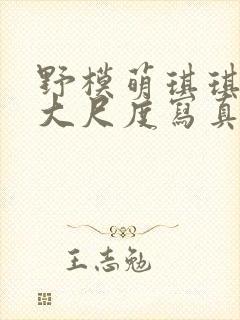 野模萌琪琪
大尺度寫真
王志勉